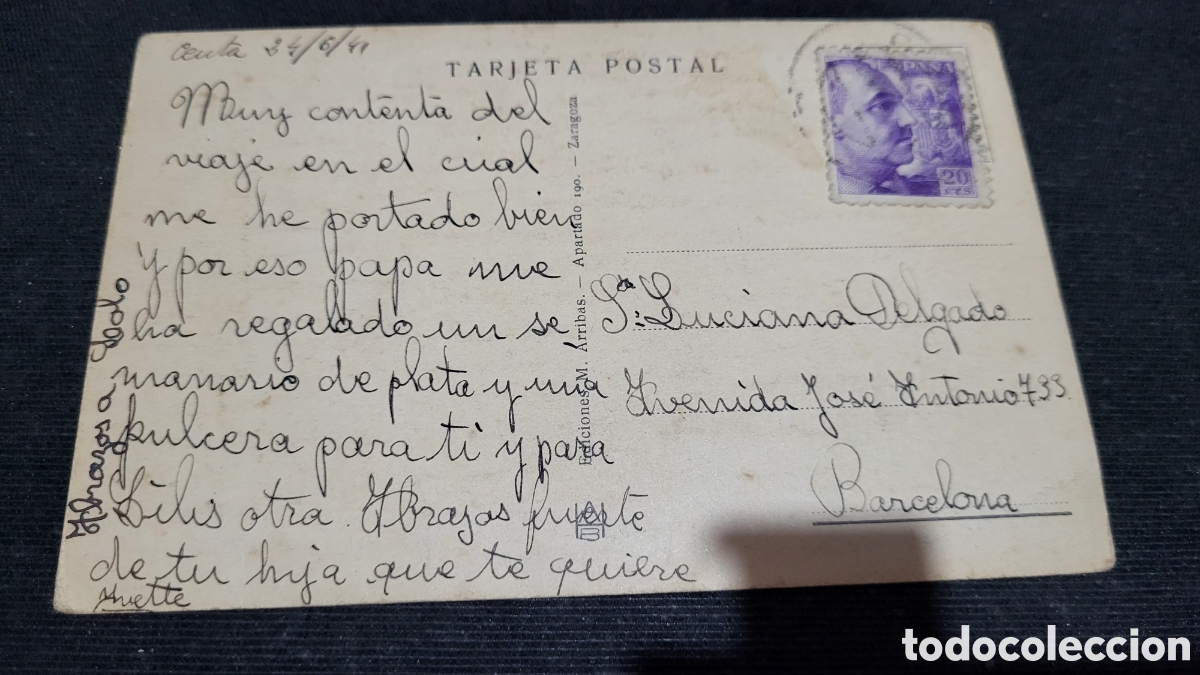 Ceuta 24/6/41
TARJETA POSTAL
Muy contenta del
viaje en el cual
me he portado bien
y por eso papa me
ha regalado un se
manario de plata y una
pulcera para ti y para
Lilis otra. Abrazos fuerte
de tu hija que te quiere
Yvette
Abrazos a Lolo
Ediciones M. Arribas. — Apartado 190. — Zaragoza
ESPAÑA
20
CTS
Sra: Luciana Delgado
Avenida José Antonio 733
Barcelona
todocoleccion